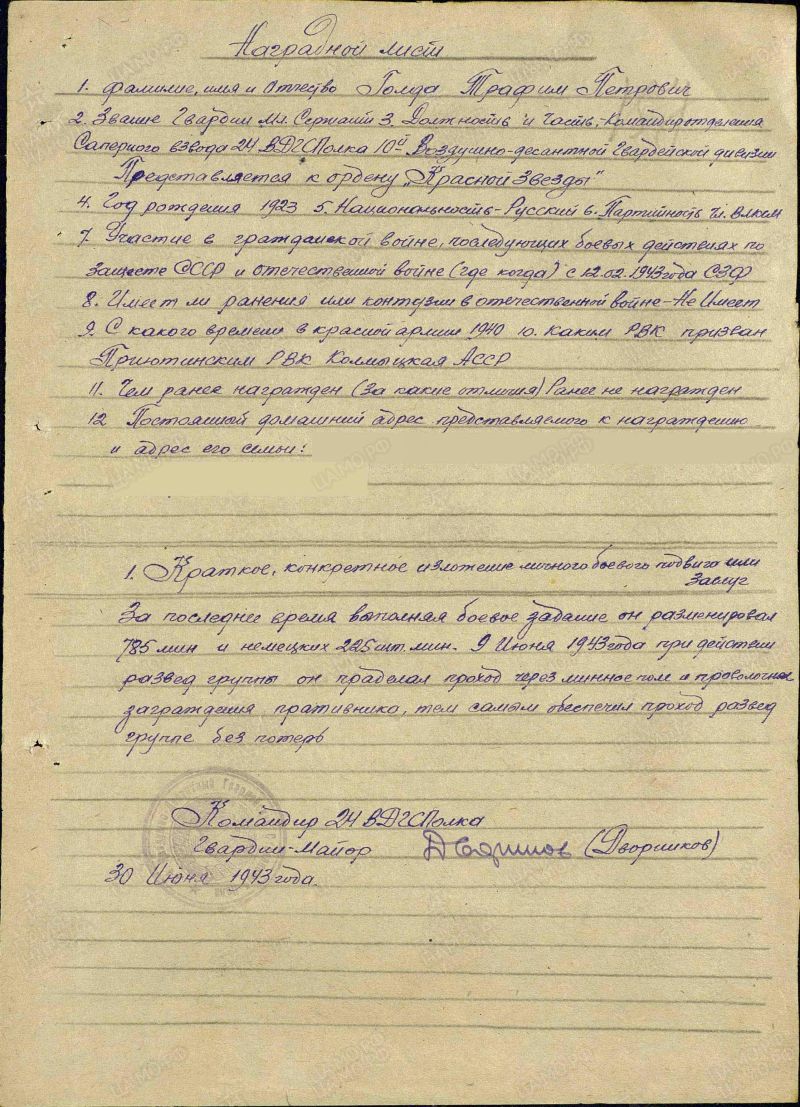 Наградной лист
1. Фамилие, имя и Отчество Голда Трафим Петрович
2. Звание Гвардии Мл. Сержант 3. Должность и часть,-Командир отделения
Саперного взвода 24 ВДГСПолка 10й Воздушно-десантной Гвардейской дивизии
Представляется к ордену „Красной Звезды"
4. Год рождения 1923 5. Национальность-Русский 6. Партийность чл. Влксм
7. Участие в гражданской войне, последующих боевых действиях по
защите СССР и отечественной войне (где когда) с 12.02.1943 года СЗФ
8. Имеет ли ранения или контузии в отечественной войне-Не Имеет
9. С какого времени в красной армии 1940 10. Каким РВК призван
Приютинским РВК Колмыцкая АССР
11. Чем ранее награжден (за какие отличия) Ранее не награжден
12 Постоянный домашний адрес представляемого к награждению
и адрес его семьи:
1. Краткое, конкретное изложение личного боевого подвига или
заслуг
За последнее время выполная боевое задание он разменировал
785 мин и немецких 225 шт. мин. 9 Июня 1943 года при действии
развед группы он праделал проход через минное поле и проволочные
заграждения пративника, тем самым обеспечил проход развед
группе без потерь
Командир 24 ВДГСПолка
Гвардии-Майор Дворников (Дворников)
30 Июня 1943 года.
ЦАМО.РФ